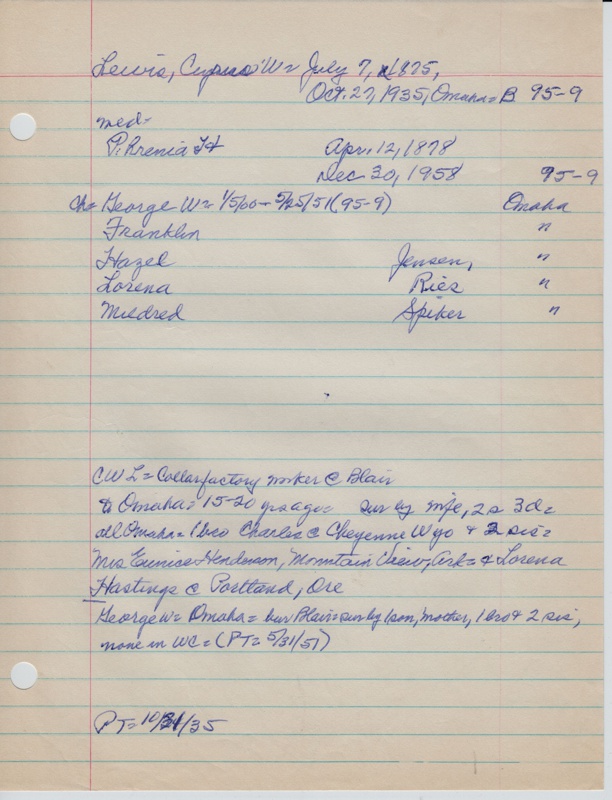 Lewis, Cyprus W= July 7, 1875,
Oct. 27, 1935, Omaha= B 95-9
med=
P. Krenia H Apr. 12, 1878
Dec 30, 1958 95-9
Ch= George W= 1/5/00- 5/25/51 (95-9) Omaha
Franklin "
Hazel Jensen, "
Lorena Ries "
Mildred Spiker "
CWL= Collar factory worker @ Blair
to Omaha= 15-20 yrs ago= sur by wife, 2s 3d=
all Omaha= 1 bro Charles @ Cheyenne Wyo + 2 sis=
Mrs Eunice Henderson, Mountain View, Ark= & Lorena
Hastings @ Portland, Ore
George W= Omaha= bur Blair= sur by 1 son, mother, 1 bro & 2 sis,
none in WC= (PT= 5/31/51)
PT= 10/31/35